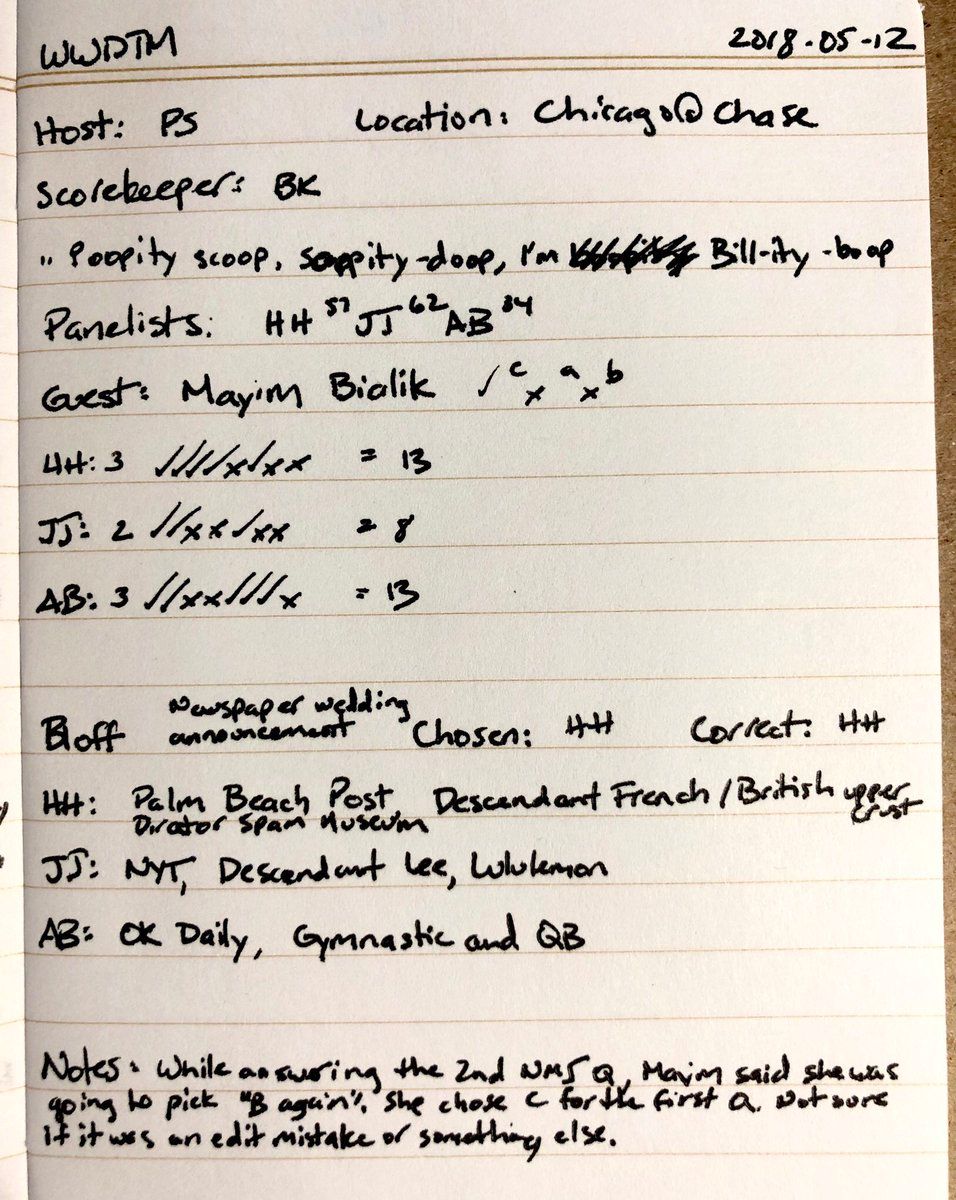 WWDTM 2018-05-12
Host: PS Location: Chicago @ Chase
Scorekeeper: BK
" Poopity scoop, scoppity-doop, I'm Bill-ity -boop
Panelists: HH 57 JJ 62 AB 84
Guest: Mayim Bialik ✓ c x a x b
HH: 3 ✓✓✓✓x✓xx = 13
JJ: 2 ✓✓xx✓xx = 8
AB: 3 ✓✓xx✓✓✓x = 13
Newspaper wedding
Bloff announcement Chosen: HH Correct: HH
HH: Palm Beach Post, Descendant French / British upper crust
Dirator Spam Museum
JJ: NYT, Descendant Lee, Lululemon
AB: OK Daily, Gymnastic and QB
Notes: While answering the 2nd NMJ Q, Mayim said she was
going to pick "B again". She chose C for the first Q. Not sure
if it was an edit mistake or something else.